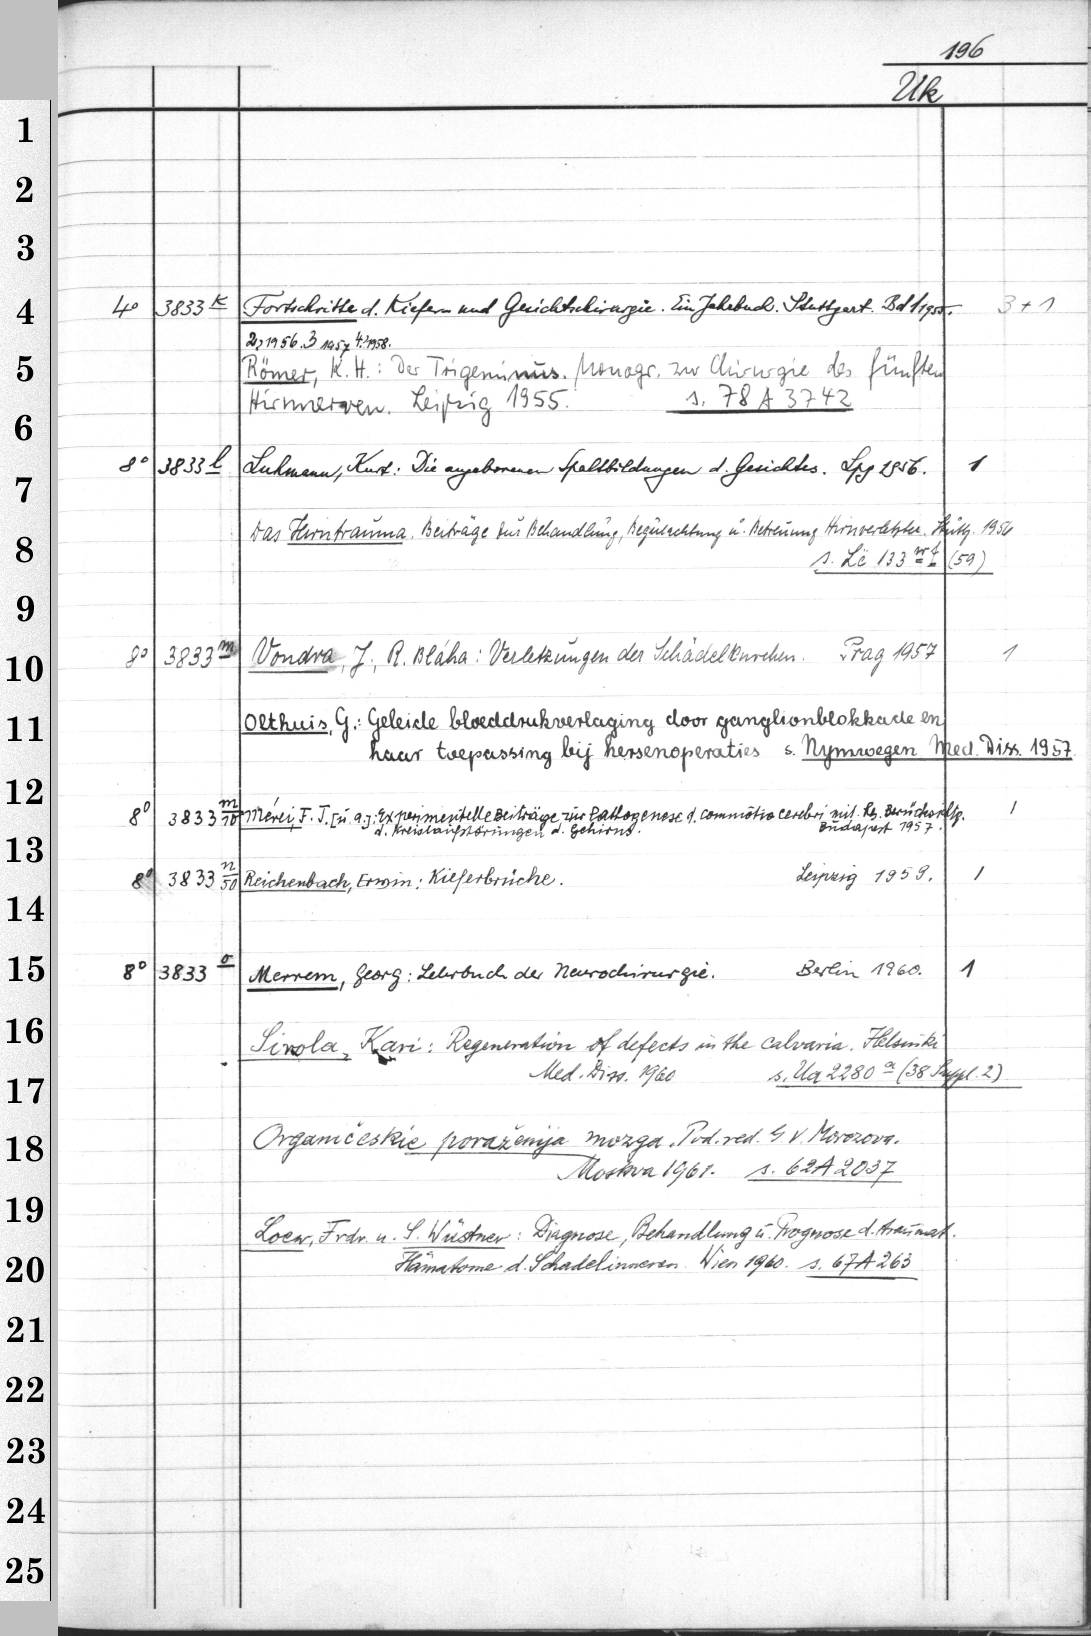 196
Uk
1
2
3
4
5
6
7
8
9
10
11
12
13
14
15
16
17
18
19
20
21
22
23
24
25
4° 3833 k Fortschritte d. Kiefern und Gesichtschirurgie. Ein Jahrbuch. Stuttgart. Bd 1 1955. 3 + 1
2, 1956. 3 1957 4. 1958.
Römer, K. H.: Der Trigeminus. Monogr. zur Chirurgie des fünften
Hirnnerven. Leipzig 1955. s. 78 A 3742
8° 3833 l Kurt: Die angeborenen Spaltbildungen d. Gesichtes. Lpg 1956. 1
Das Hirntrauma. Beiträge zur Behandlung, Begutachtung u. Betreuung Hirnverletzter. Stuttg. 1956
s. Lë 133 (59)
8° 3833 m Vondra, J., R. Bláha: Verletzungen der Schädelknochen. Prag 1957 1
Olthuis, G.: Geleide bloeddrukverlaging door ganglionblokkade en
haar toepassing bij hersenoperaties s. Nymwegen Med. Diss. 1957
8° 3833 m/10 Mérei, F. T. [u. a.]: Experimentelle Beiträge zur Pathogenese d. commotio cerebri mit bes. Berücksichtg. 1
d. Kreislaufstörungen d. Gehirns. Budapest 1957.
8° 3833 n/50 Reichenbach, Erwin: Kieferbrüche. Leipzig 1959. 1
8° 3833 o Merrem, Georg: Lehrbuch der Neurochirurgie. Berlin 1960. 1
Sirola, Kari: Regeneration of defects in the calvaria. Helsinki
Med. Diss. 1960 s. Ua 2280 a (38 Suppl. 2)
Organičeskie poraženija mozga. Pod. red. G. V. Morozova.
Moskva 1961. s. 62 A 2037
Loew, Frdr. u. S. Wüstner: Diagnose, Behandlung u. Prognose d. traumat.
Hämatome d. Schädelinneren. Wien 1960. s. 67 A 263